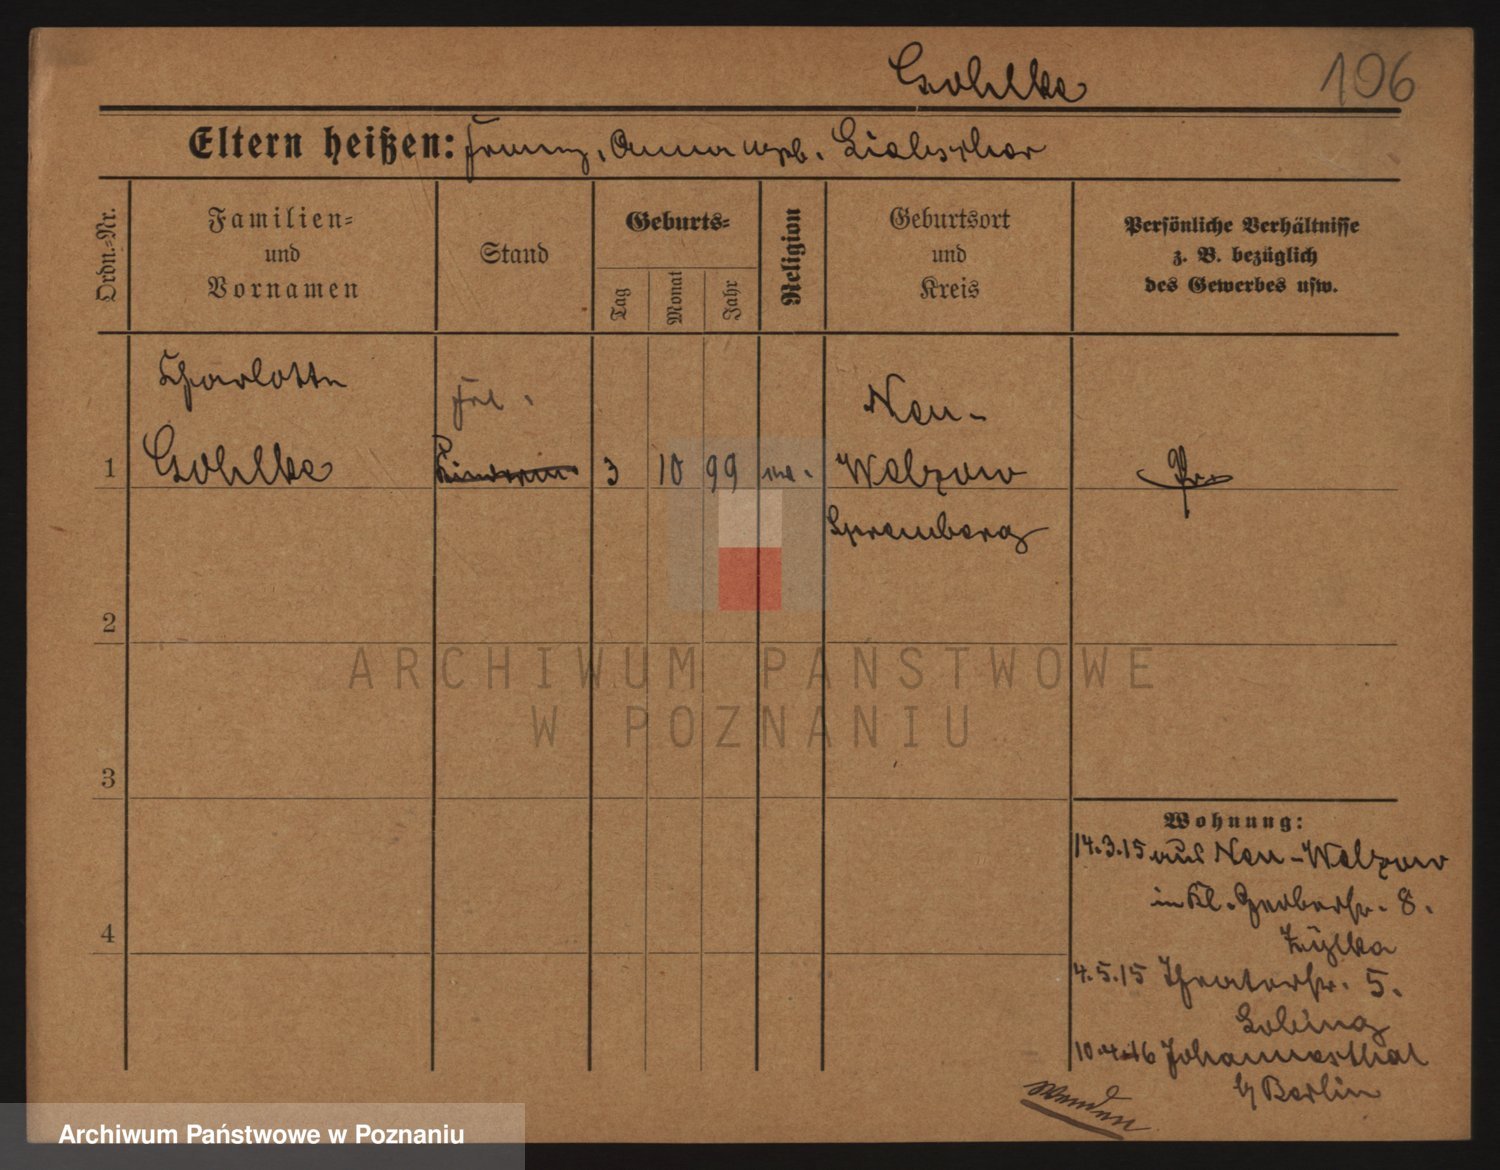 Gohlke
106
Eltern heißen: Franz, Anna geb. Liebscher
Ordn.=Nr.
Familien=
und
Vornamen
Stand
Geburts=
Tag
Monat
Jahr
Religion
Geburtsort
und
Kreis
Persönliche Verhältnisse
z. B. bezüglich
des Gewerbes usw.
Charlotte
Frl.
Neu-
1 Gohlke 3 10 99 ev. Welzow Pr.
Spremberg
2
ARCHIWUM PAŃSTWOWE
W POZNANIU
3
Wohnung:
14.3.15 aus Neu-Welzow
in Kl. Gerberstr. 8.
Zylka
4
4.5.15 Theaterstr. 5.
10.4.16 Johannesthal
b/ Berlin
wenden
Archiwum Państwowe w Poznaniu